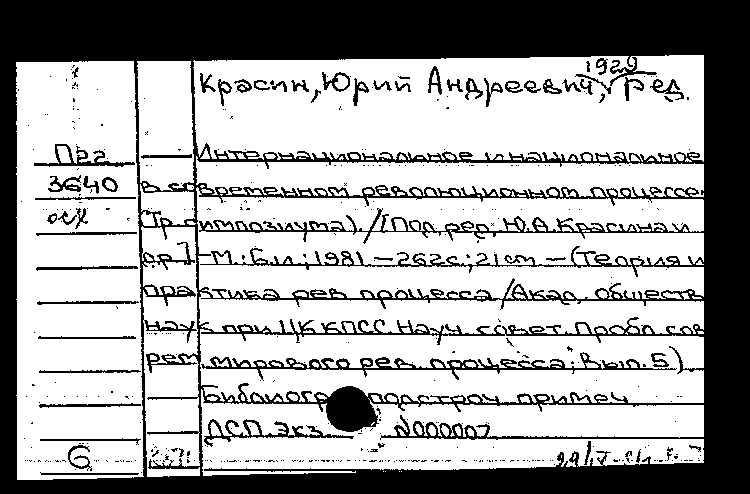 1929
Красин, Юрий Андреевич, ред.
П22 Интернациональное и национальное
3640 в современном революционном процессе.
осх (Тр. симпозиума). /[Под ред. Ю.А. Красина и
др.] - М.: Б.и.; 1981 - 262с.; 21см - (Теория и
практика рев. процесса / Акад. обществ.
наук при ЦК КПСС. Науч. совет. Пробл. сов
рем. мирового рев. процесса; Вып. 5)
Библиогр. подстроч. примеч.
ДСП. Экз. N000007
6